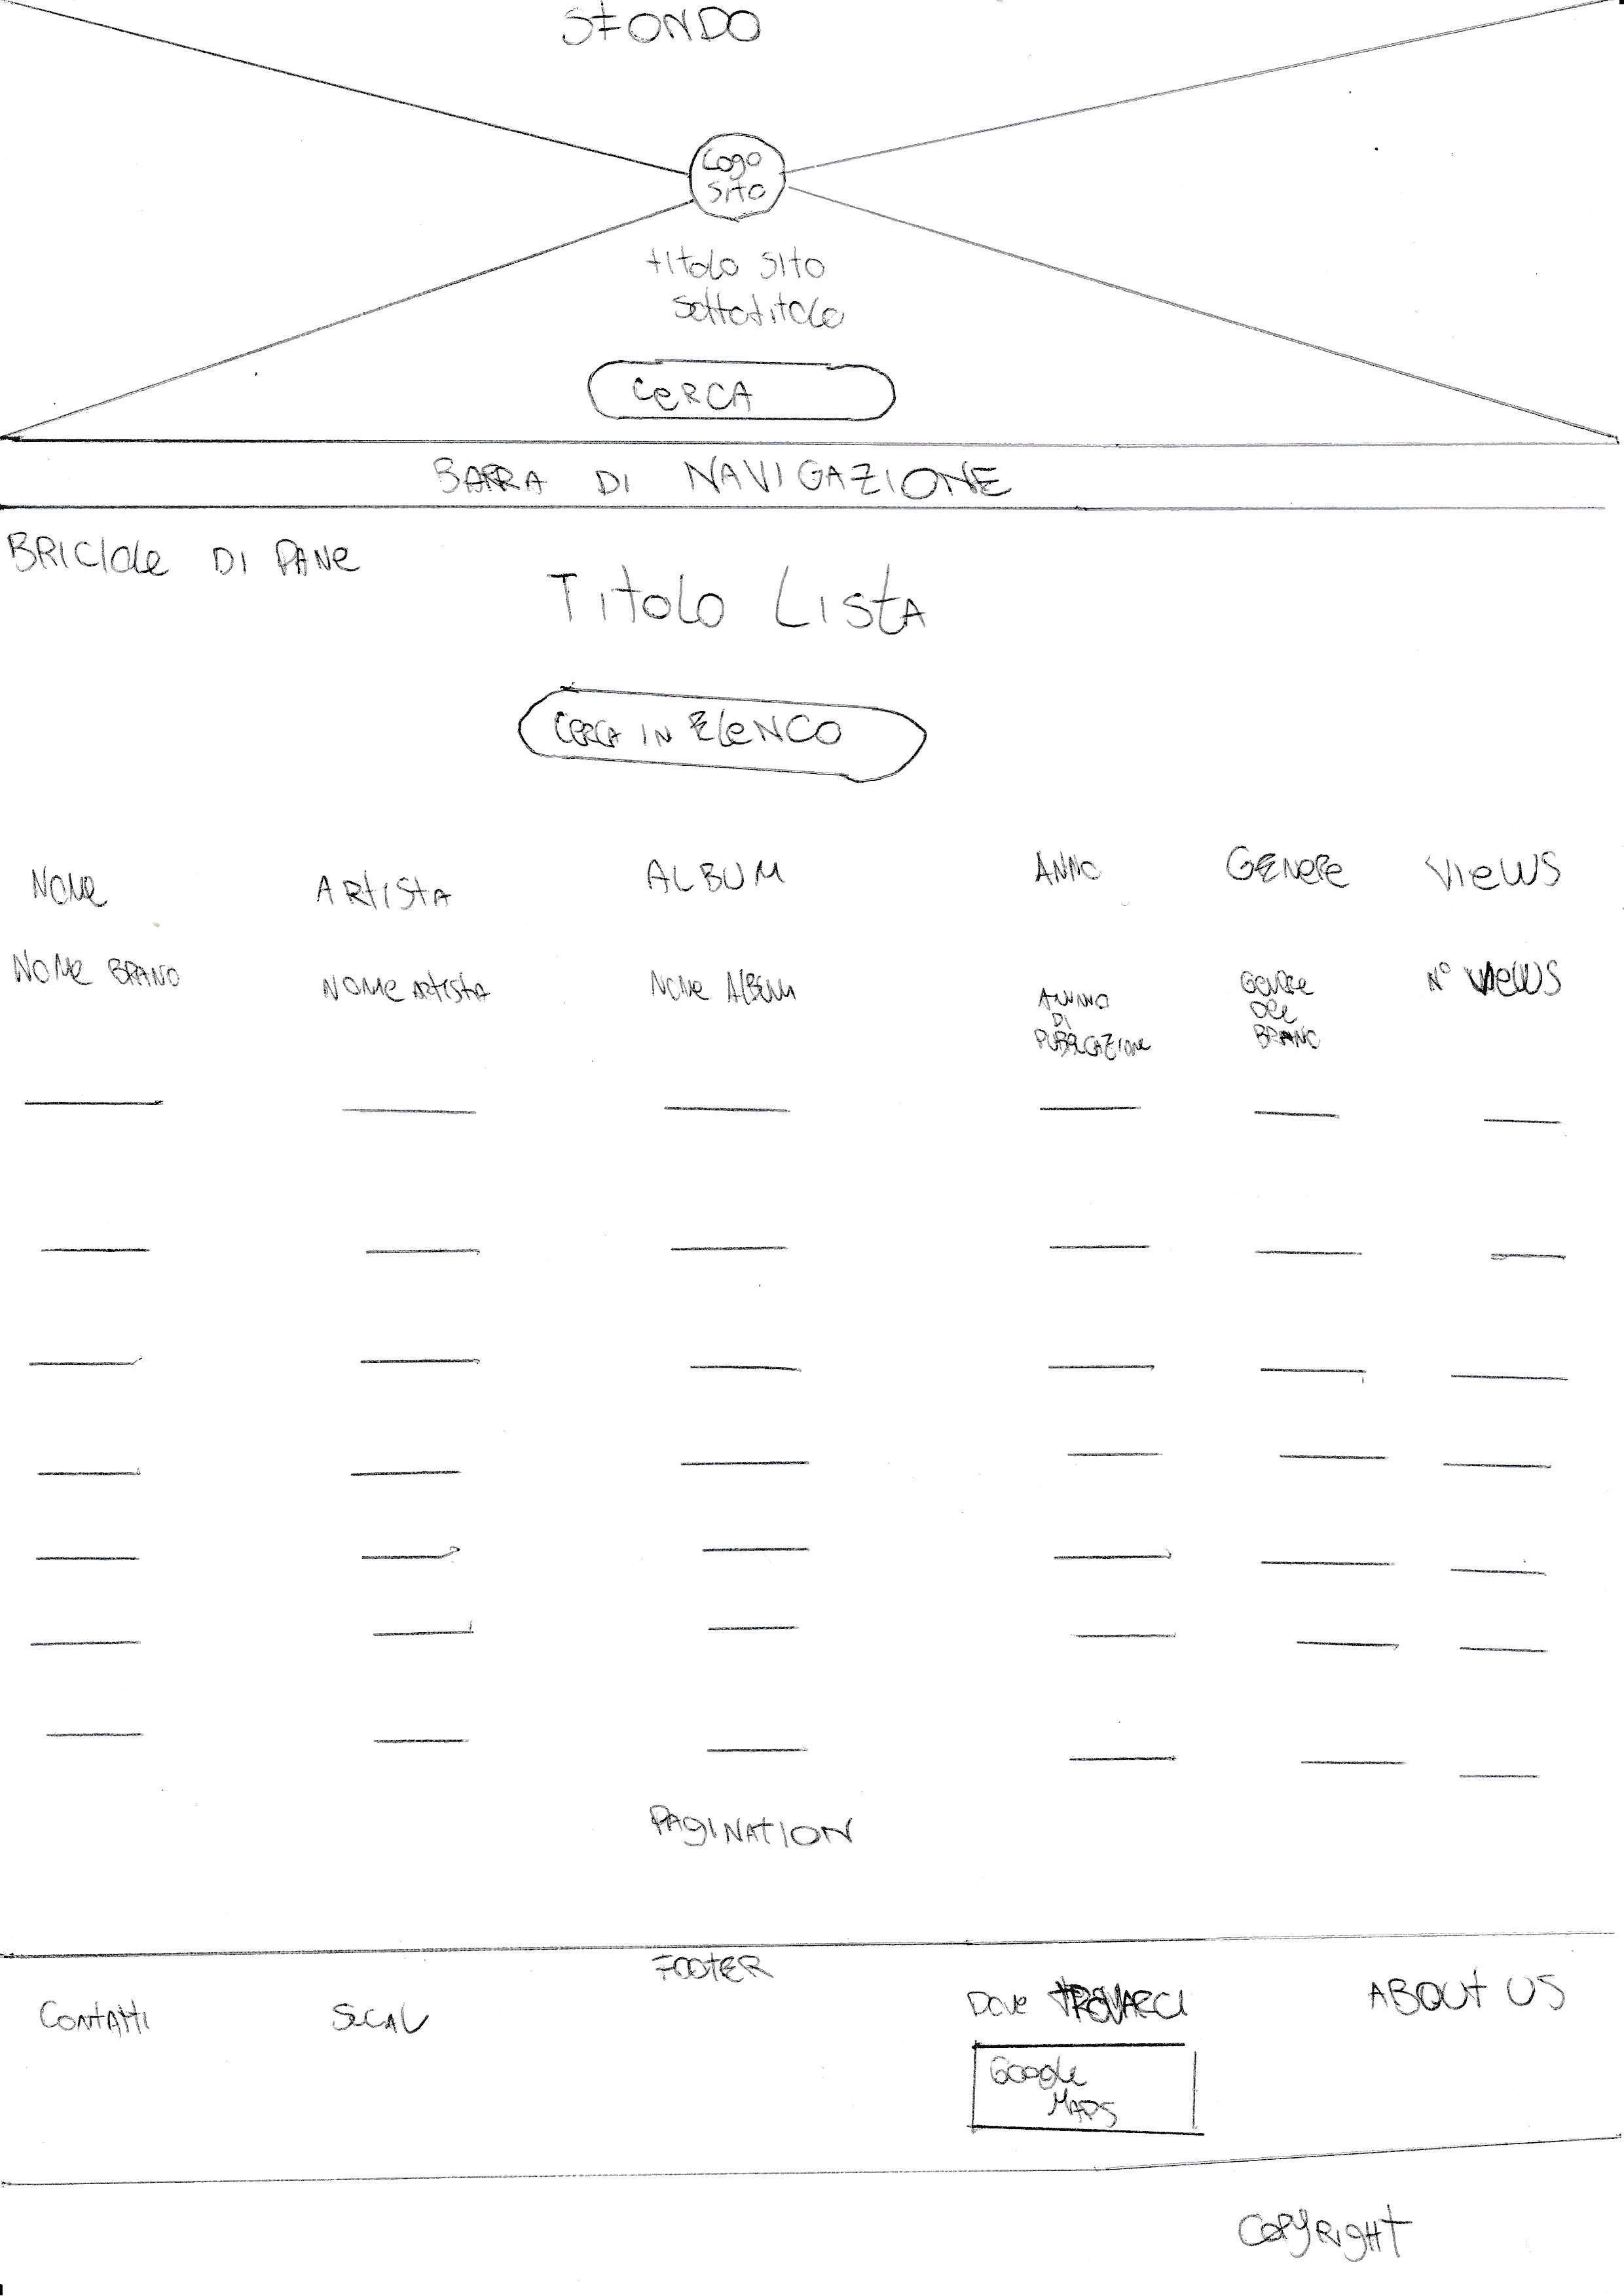 SFONDO
Logo
Sito
titolo sito
sottotitolo
CERCA
BARRA DI NAVIGAZIONE
BRICIOLE DI PANE
Titolo Lista
CERCA IN ELENCO
NOME ARTISTA ALBUM ANNO GENERE VIEWS
NOME BRANO NOME ARTISTA NOME ALBUM ANNO DI PUBBLICAZIONE GENERE DEL BRANO N° VIEWS
PAGINATION
FOOTER
CONTATTI SOCIAL DOVE TROVARCI ABOUT US
GOOGLE
MAPS
COPYRIGHT